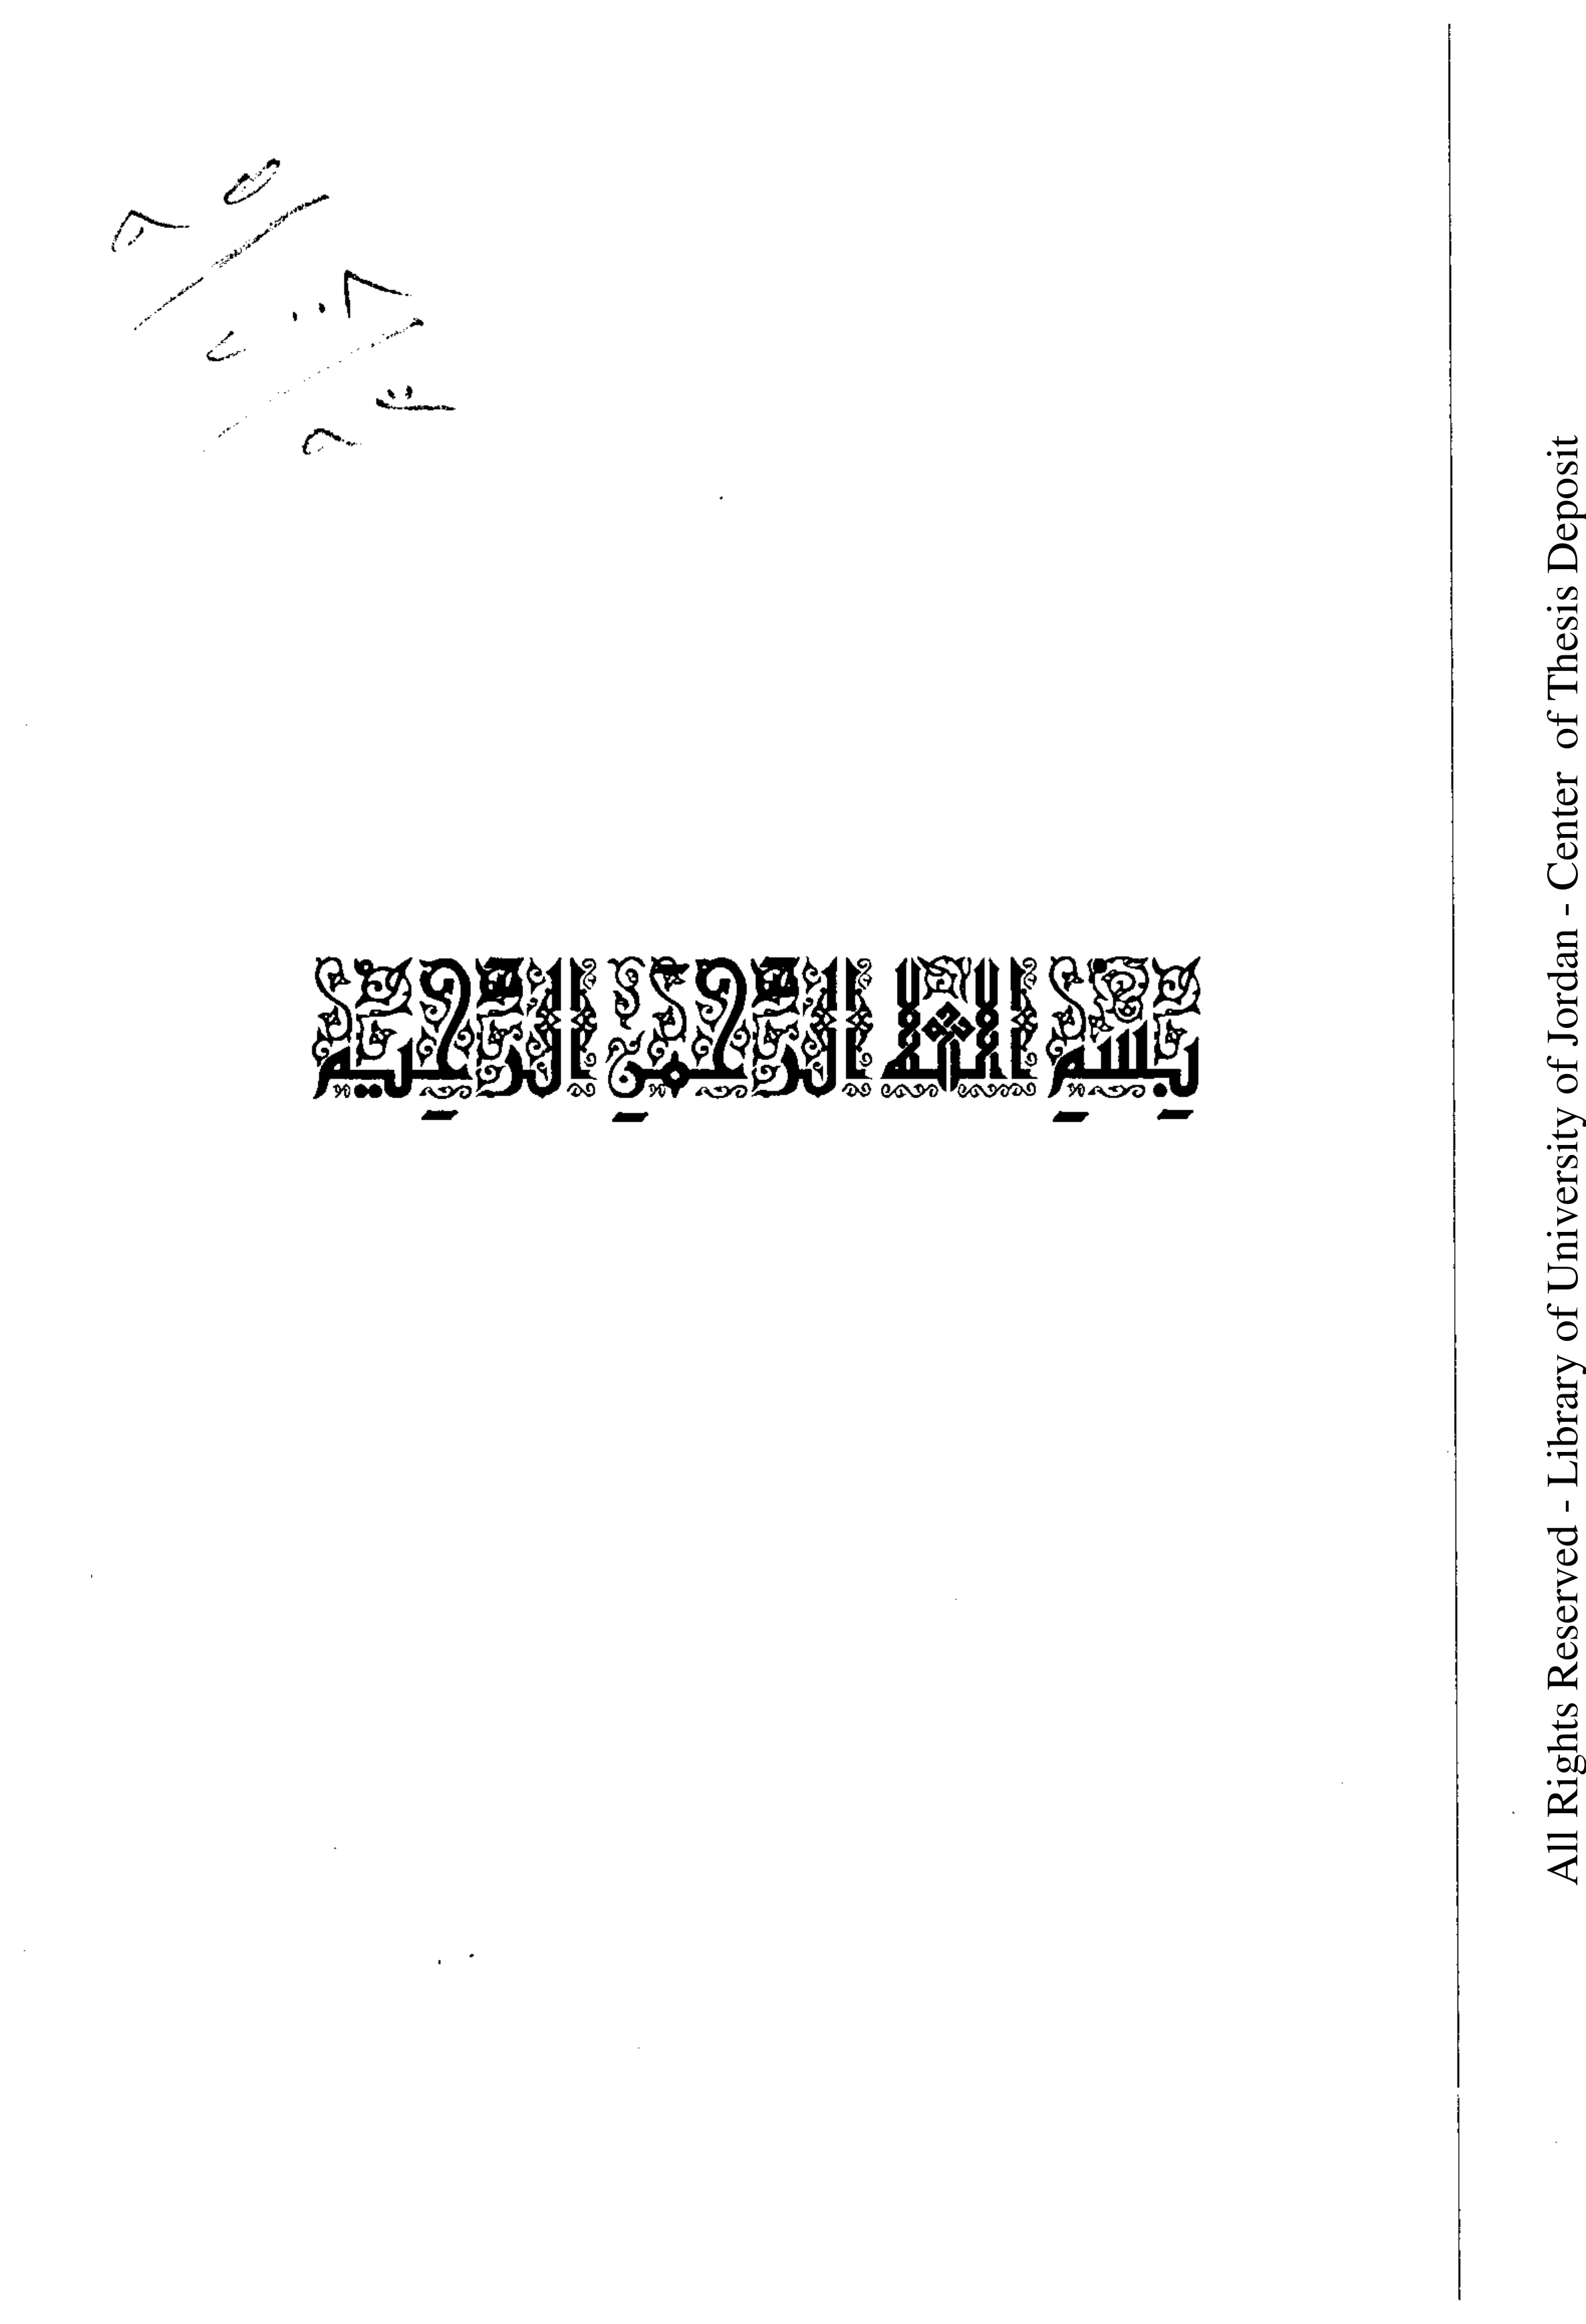 بِسْمِ اللَّه الرَّحْمنِ الرَّحِيم
All Rights Reserved - Library of University of Jordan - Center of Thesis Deposit